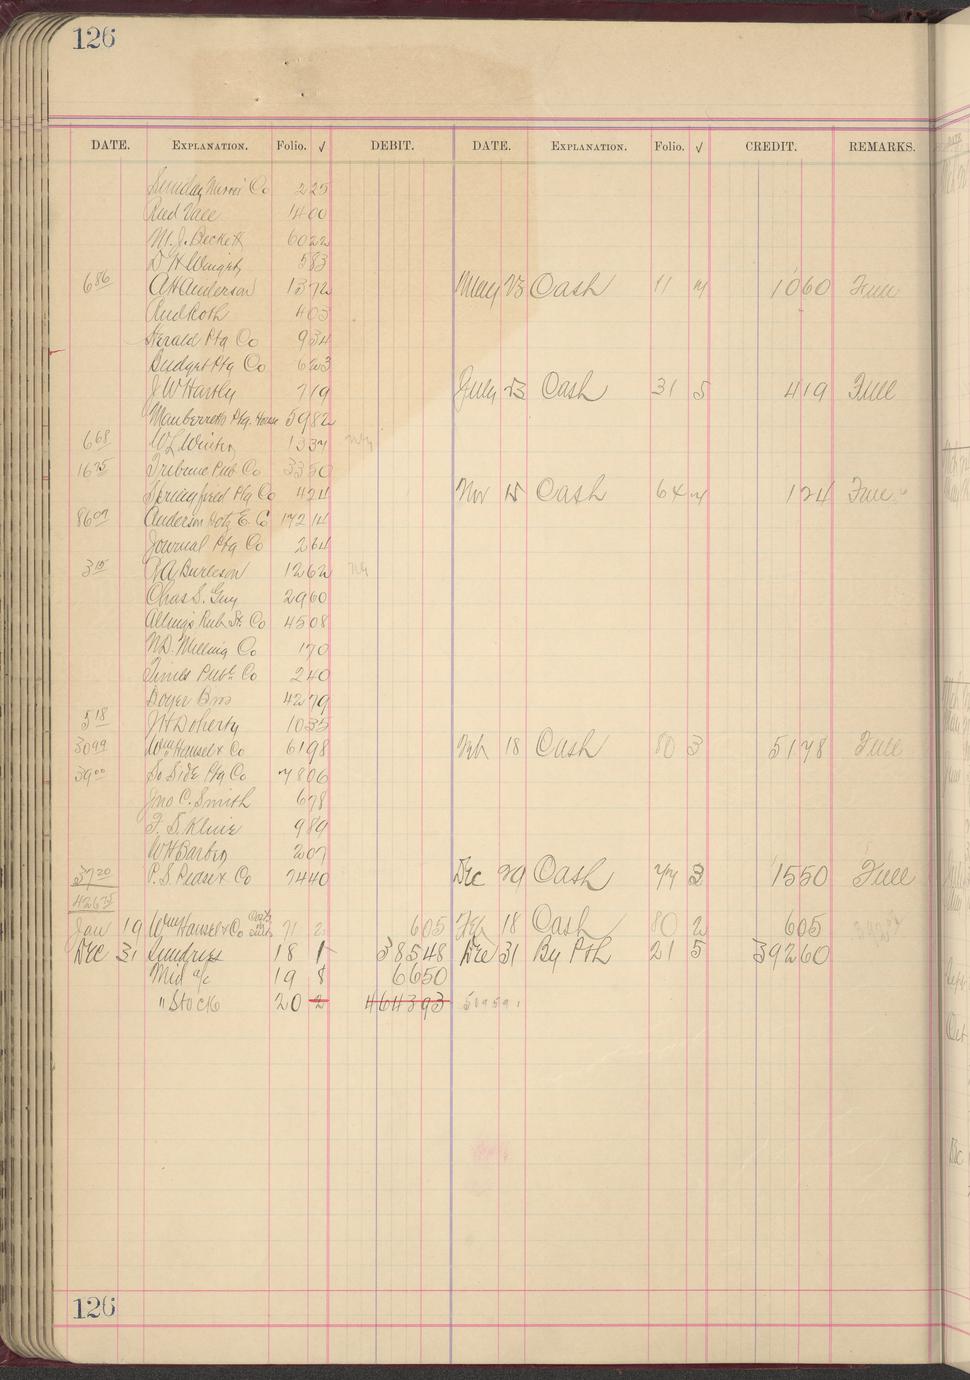 126
DATE. EXPLANATION. Folio. √ DEBIT. DATE. EXPLANATION. Folio. √ CREDIT. REMARKS.
Sunday Mirror Co 2 25
Rud Vace 14 00
M. J. Beckett 60 22
D H Wright 5 83
6 86 A H Anderson 13 72 May 23 Cash 11 4 10 60 Full
Rud Roth 4 03
Herald Ptg Co 9 34
Budget Ptg Co 6 23
J W Hartly 7 19 July 23 Cash 31 5 4 19 Full
Ptg. House 59 82
6 68 W L Winters 13 37
16 75 Tribune Pub Co 33 50
Springfield Ptg Co 4 24 Nov 15 Cash 64 4 1 24 Full
86 07 Anderson E. Co 172 14
Journal Ptg Co 2 64
J A Burleson 12 62
Chas S. Guy 29 60
Alling's Rub St. Co 45 08
N.D. Milling Co 1 70
Times Pub. Co 2 40
Boyer Bros 42 79
5 18 J H Doherty 10 35
30 99 Wm Hansel & Co 61 98 Feb 18 Cash 80 3 51 78 Full
39 00 So Side Ptg Co 78 06
Jno C. Smith 6 78
F. S. Kline 9 89
W H Barber 2 07
37 20 P. S. Pease & Co 74 40 Dec 29 Cash 77 3 15 50 Full
Jan 19 Wm Hansel & Co 71 2 6 05 Feb 18 Cash 80 2 6 05
Dec 31 Sundries 18 1 385 48 Dec 31 By P&L 21 5 392 60
Mid a/c 19 8 66 50
" Stock 20 2 4643 93
126